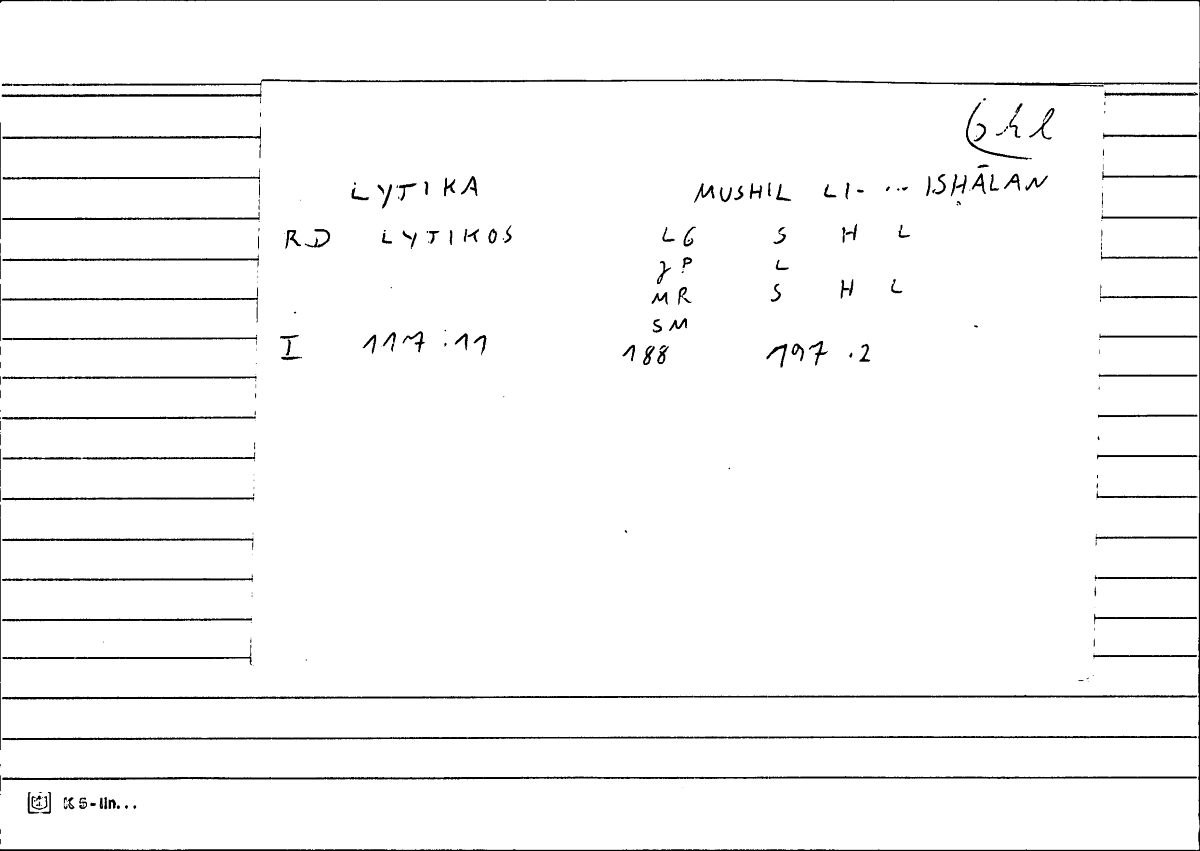 shl
LYTIKA MUSHIL LI- ... ISHĀLAN
RD LYTIKOS LG S H L
JP L
MR S H L
SM
I 117:11 188 197.2
K5-lin...